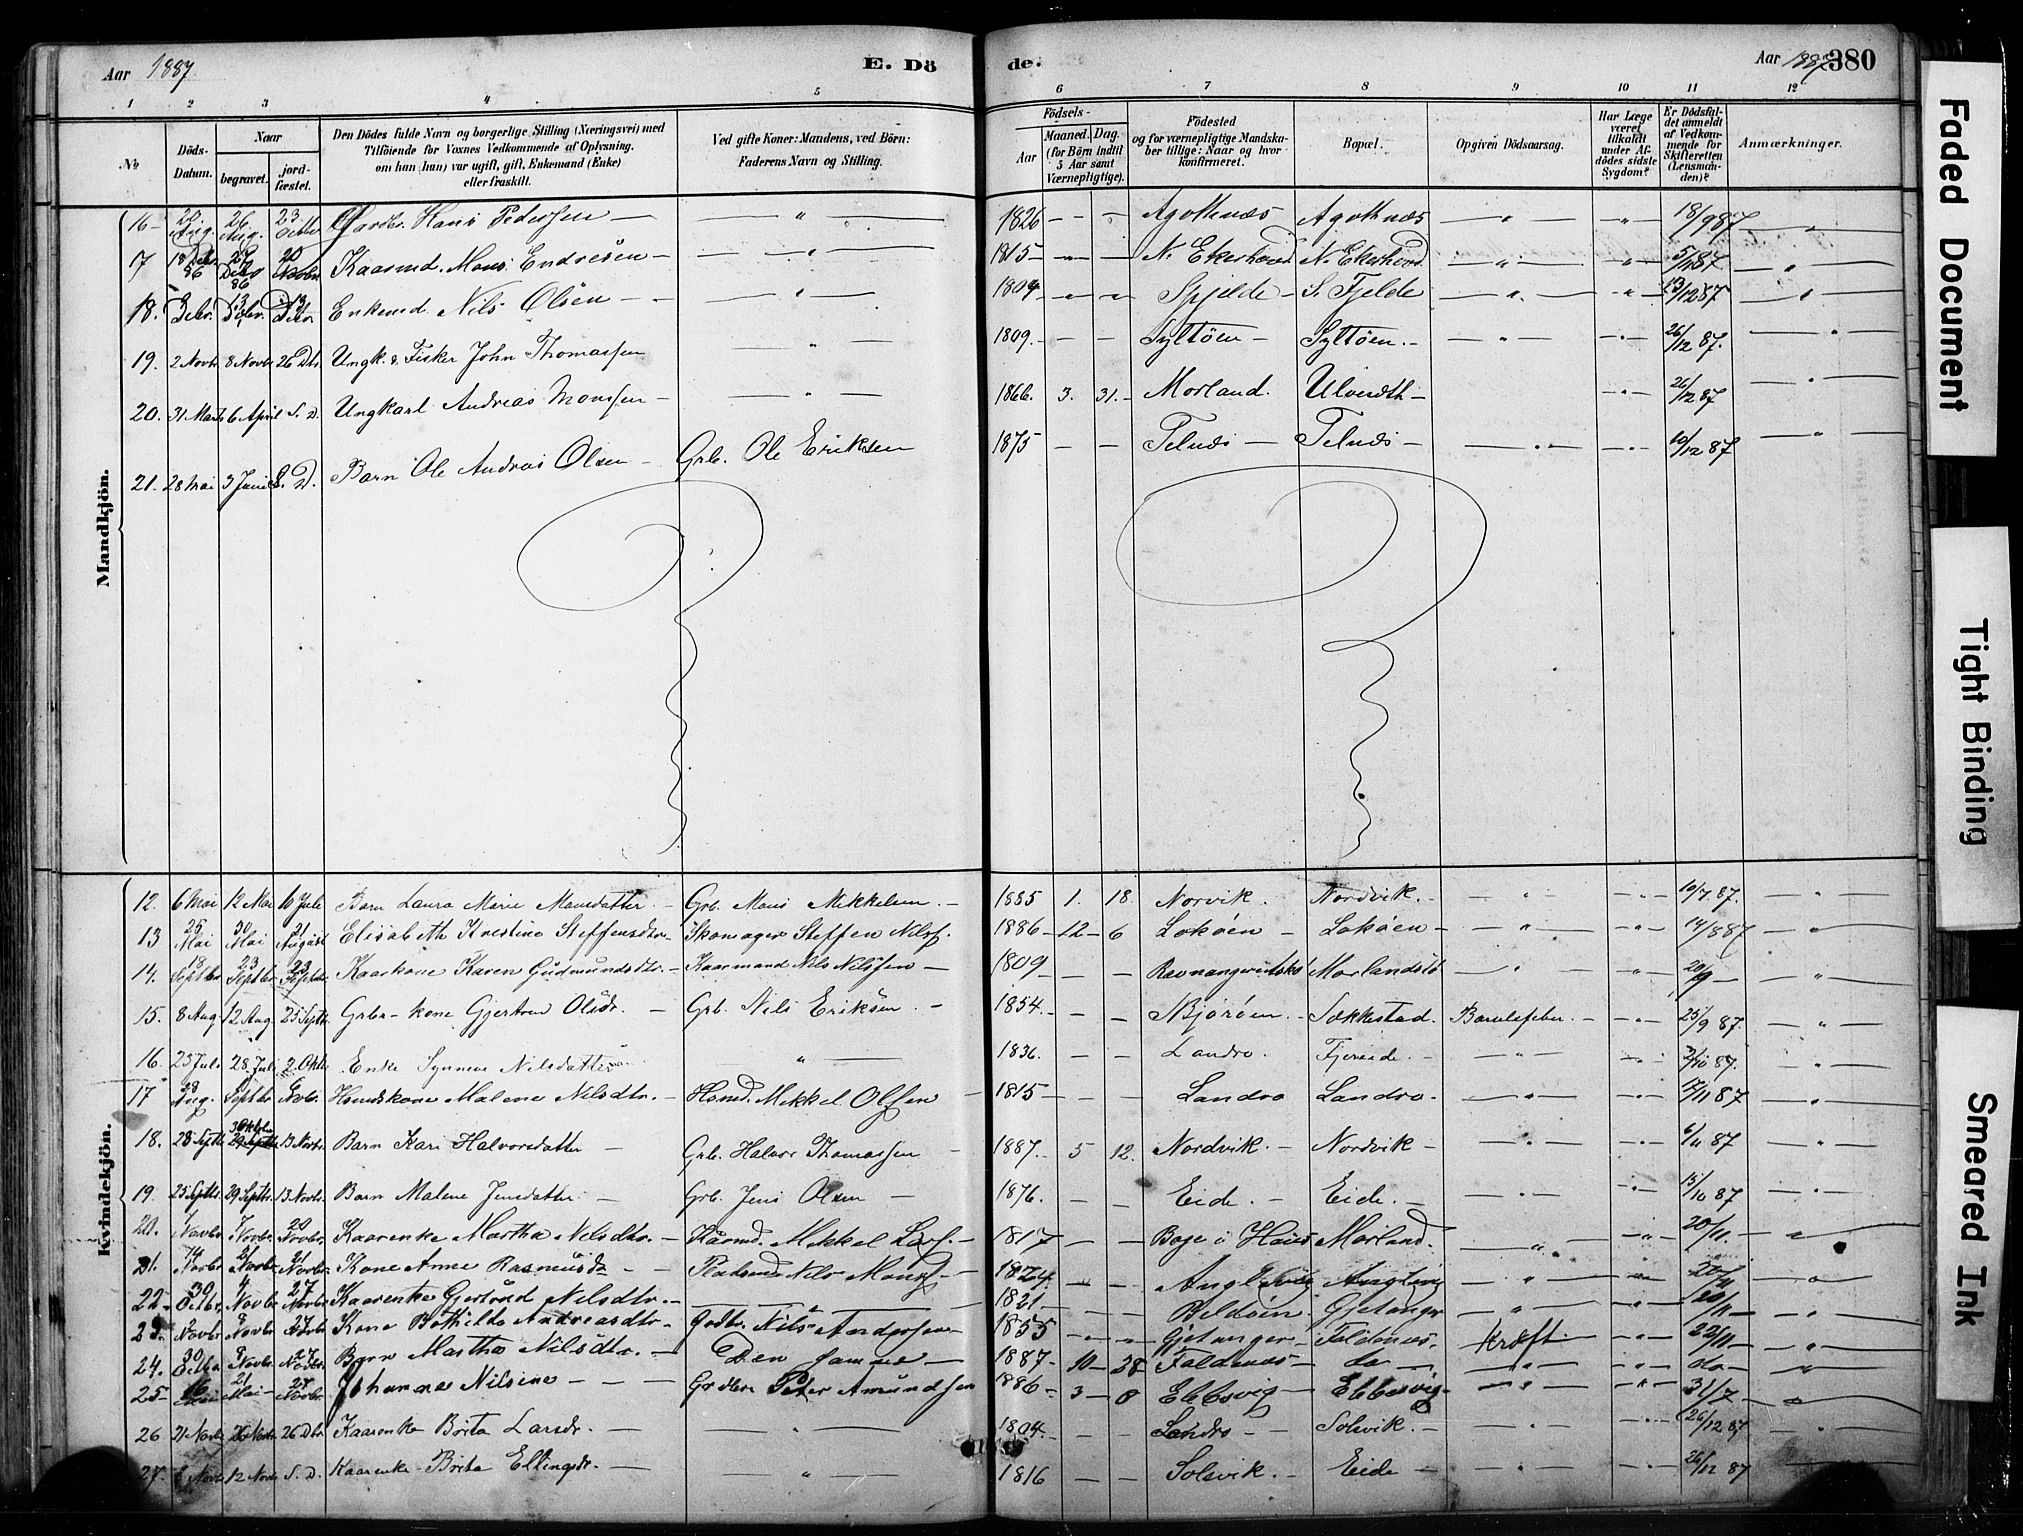 Aar 1887 E. Dö
de. Aar 1887 380
1 2 3 4 5
6 7 8 9 10 11 12
No Döds-Datum. Naar begravet. jord-fæstet. Den Dödes fulde Navn og borgerlige Stilling (Næringsvei) med Tilföiende for Voxnes Vedkommende af Oplysning, om han (hun) var ugift, gift, Enkemand (Enke) eller fraskilt. Ved gifte Koner: Mandens, ved Börn: Faderens Navn og Stilling.
Födsels- Aar Maaned. Dag. (for Börn indtil 5 Aar samt Værnepligtige). Födested og for værnepligtige Mandska-ber tillige: Naar og hvor konfirmeret. Bopæl. Opgiven Dödsaarsag. Har Læge været tilkaldt under Af-dödes sidste Sygdom? Er Dödsfal-det anmeldt af Vedkom-mende for Skifteretten (Lensman-den)? Anmærkninger.
Mandkjön.
16 Aug. 26 Aug. 23 Hans Pedersen — " — 1826 — — Agotnæs Agotnæs — " — " 18/9 87 "
17 18 Debr. 86 Debr 86 20 Novbr Kaarmd. Mons Endresen — " — 1815 — — N. Ekerhovd N. Ekerhovd — " — " 87 "
18. Debr. Debr. Debr Enkemd. Nils Olsen — " — 1804 — — Spjelde S. Fjelde — " — " 13/12 87 "
19. 2 Novbr 8 Novbr 26 Dbr Ungk. & Fisker John Thomassen — " — 1809. — — Syltöen — Syltöen. — " — " 26/12 87. "
20. 31 Marts 6 April S. D. Ungkarl Andreas Monssen — " — 1866. 3. 31. Morland. — " 26/12 87 "
21. 28 Mai 3 Juni S. D. Barn Ole Andreas Olsen — Grb. Ole Eriksen 1875 — — Telnes — Telnes — " — " 10/12 87 "
Kvindekjön.
12. 6 Mai 12 Mai 10 Juli Barn Laura Marie Monsdatter. Grb. Mons Mikkelsen. 1885 1. 18. Norvik. Nordvik. " " 10/7 87. "
13 25 Mai 30 Mai 21 August Elisabeth Kristine Steffensdtr. Skomager Steffen Nilss. 1886 12 6 Lokøen Lokøen " " 14/8 87 "
14. 18 Septbr 23 Septbr 23 Kaarkone Karen Gudmundsdtr. Kaarmand Nils Nilssen 1809 — — Morlandstö " " 20/9 "
15. 8 Aug 12 Aug. 25 Septb. Grbr-kone Gjertrud Olsdr. Grb. Nils Eriksen. 1854. — — Bjørøen. Tækkestad. Barselfeber. " 25/9 87. "
16 23 Juli 28 Juli 2 Oktbr Enke Synneve Nilsdatter " 1836. — — Landro. Fjereide. " " 2/10 87. "
17 28 Aug. Septbr Novbr. Husmdskone Malene Nilsdtr. Husmd. Mikkel Olssen 1815 — — Landro Landro. " " 87 "
18. 28 Septb 3 Oktbr 13 Novbr. Barn Kari Halvorsdatter Grb. Halvor Thomassen 1887. 5 12. Nordvik. Nordvik " " 6/11 87 "
19. 25 Septb. 29 Septb. 13 Novbr. Barn Malene Jensdatter Grb. Jens Olsen 1876. — — Eide. Eide. " " 15/10 87 "
20. 1 Novbr 7 Novbr 20 Novbr. Kaarenke Martha Nilsdtr. Kårmd. Mikkel Lars. 1817 — — Boge i Haus Morland. " " 20/11. "
21. 14 Novbr 21 Novbr. Novbr. Kone Anne Rasmusdr. Nils Monss. 1824. — — " "
22. 30 Octbr. 4 Novbr 27 Novbr Kaarenke Gjertrud Nilsdtr. " 1821 — — Beldöen Gjetanger " " 20/11 "
23. 2 Novbr 8 Novbr 27 Kone Bothilde Andreasdtr. Grdbr. Nils Anderssen 1855 — — Gjetanger. Foldnæs. Kræft " 22/11 "
24. 30 Octbr 8 Novbr. 27 Barn Martha Nilsdtr. Den samme 1887. 10 28 Foldenæs do " " do "
25 16 Mai 21 Mai 27 Novbr. Johanne Nilsine Grdbr Peter Amundsen 1886 3 8 Ebbesvig Ebbesvig " " 31/7 "
26 21 Novbr 26 Novbr 26 Dbr Kaarenke Brita Larsdr. " 1804. — — Landro Solsvik. " " 26/12 87 "
27. Novbr 12 Novbr S. D. Kaarenke Brita Ellingsdr. " 1816 — — Solsvik. Eide " " 26/12 87 "
Faded Document
Tight Binding
Smeared Ink